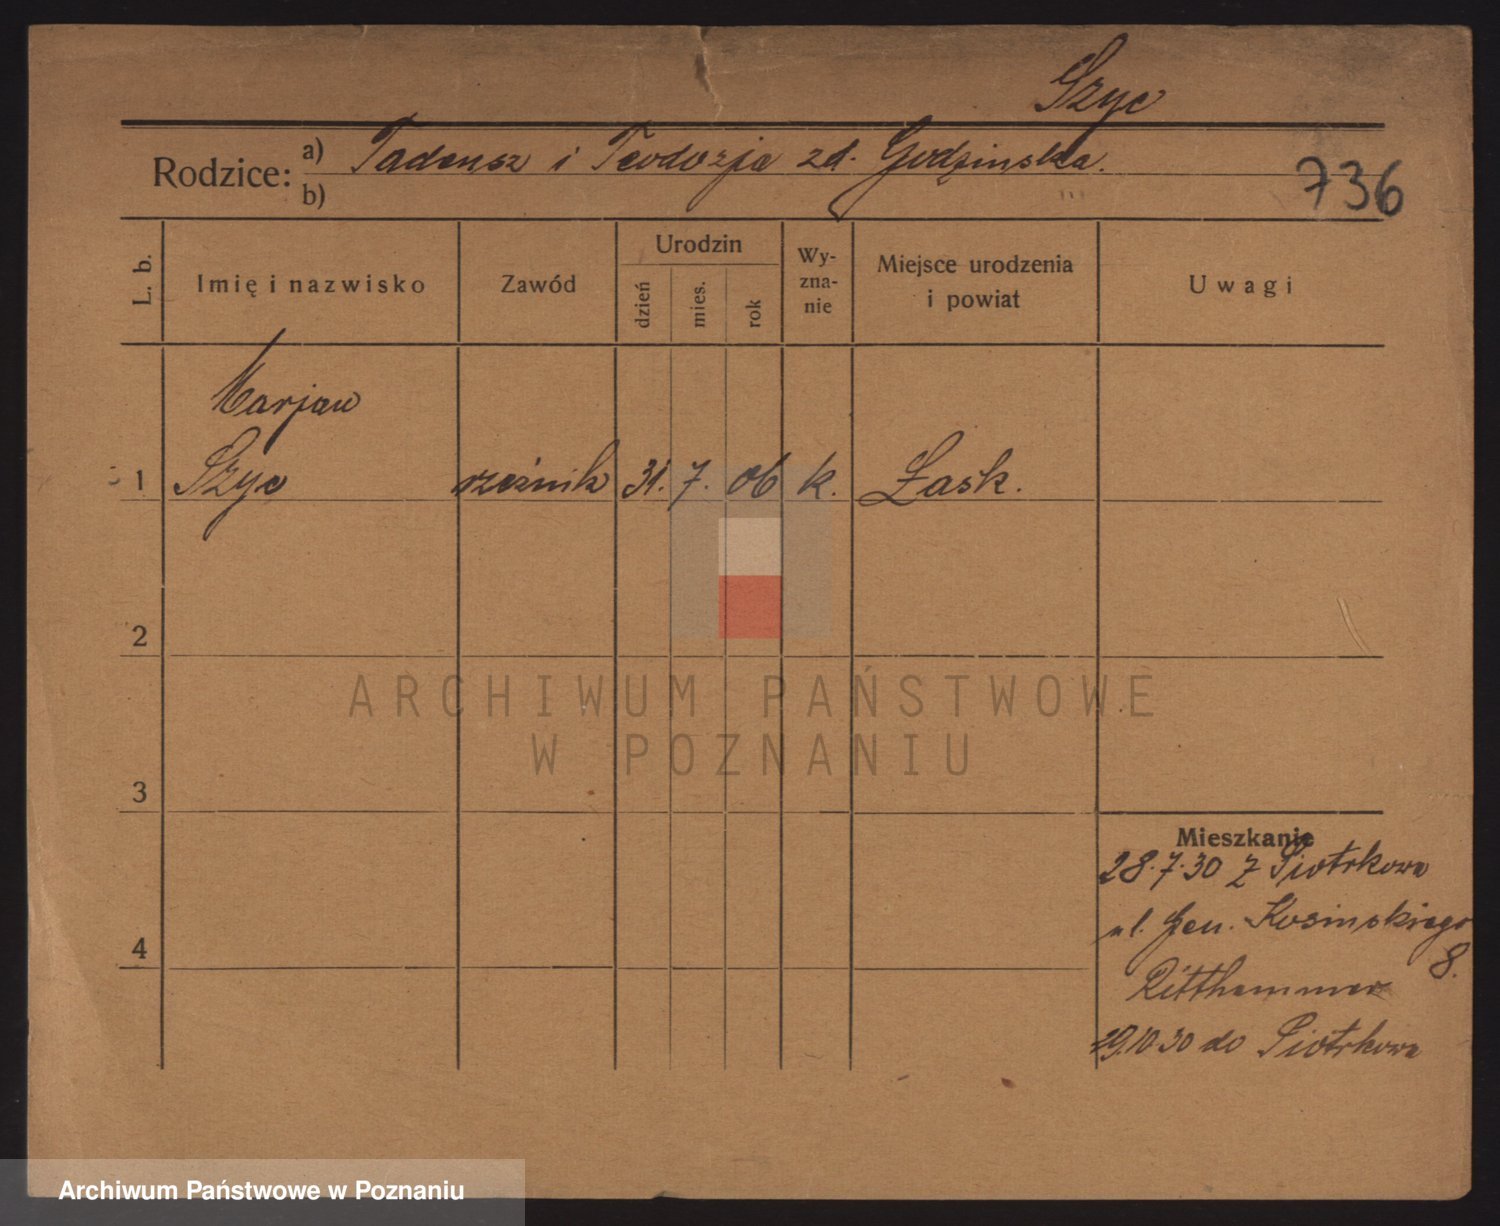 Szyc
Rodzice: a) Tadeusz i Teodozja zd. Godzinska.
b)
736
L. b.
Imię i nazwisko
Zawód
Urodzin
dzień
mies.
rok
Wy-
zna-
nie
Miejsce urodzenia
i powiat
Uwagi
Marjan
1 Szyc rzeźnik 31. 7. 06 k. Łask.
2
3
4
Mieszkanie
28.7.30 z Piotrkowa
ul. Gen. Kosinskiego
8.
Ritthammer
29.10.30 do Piotrkowa
ARCHIWUM PAŃSTWOWE
W POZNANIU
Archiwum Państwowe w Poznaniu